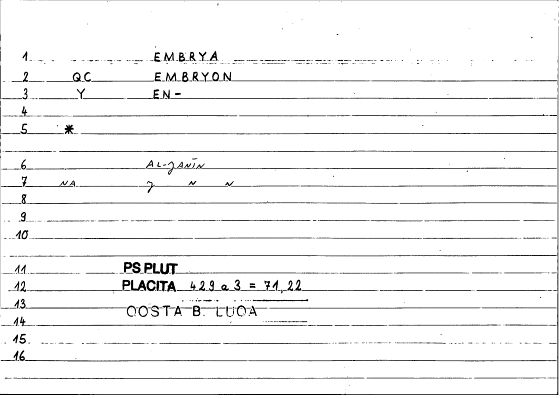 1 EMBRYA
2 QC EMBRYON
3 Y EN-
4
5 *
6 AL-ǦANĪN
7 NA ǧ N N
8
9
10
11 PS PLUT
12 PLACITA 429 a 3 = 71,22
13 QOSTA B. LUQA
14
15
16